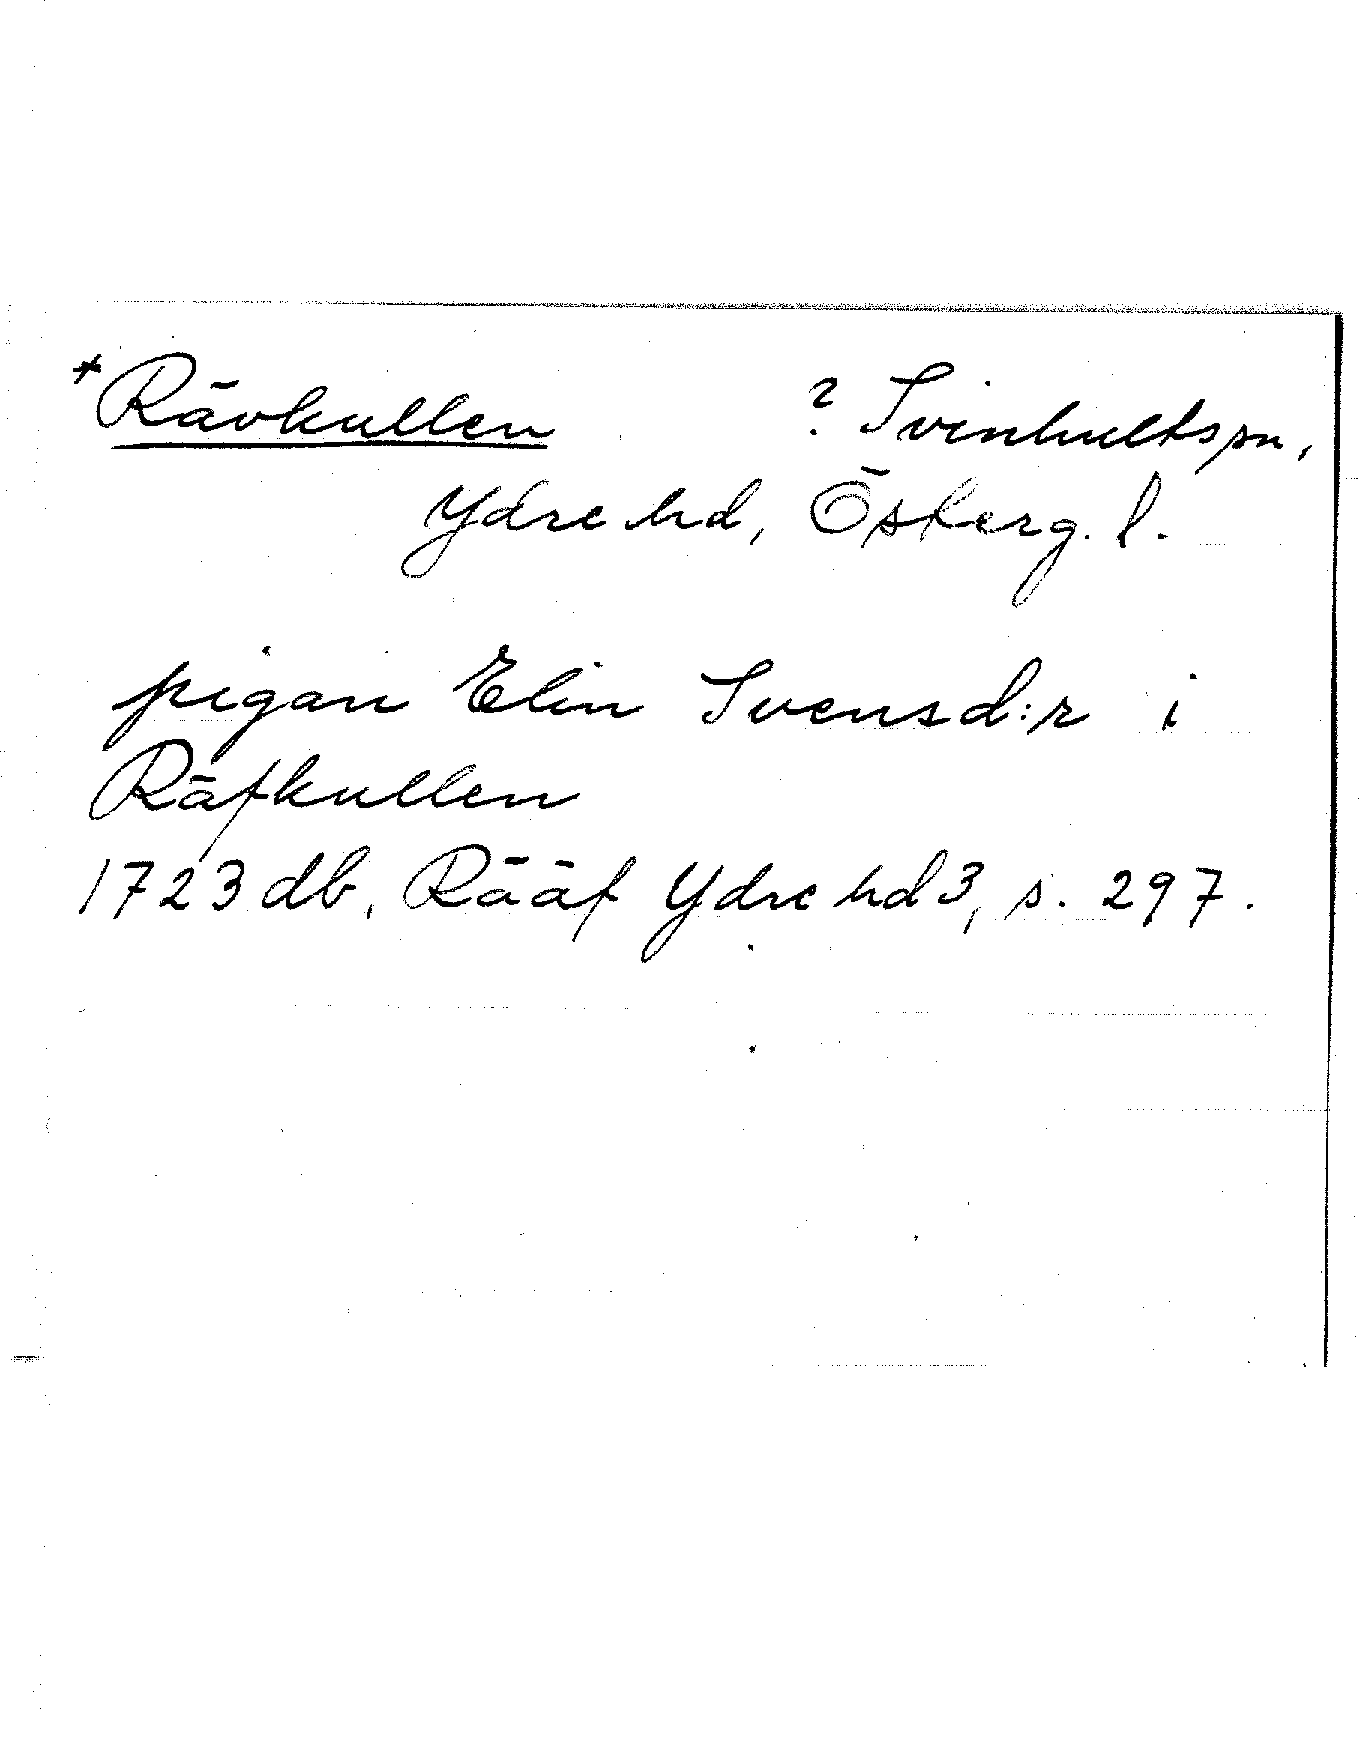 +Rävkullen ? Svinhults sn,
Ydre hd, Österg. l.
pigan Elin Svensd:r i
Räfkullen
1723 db, Rääf Ydre hd 3, s. 297.